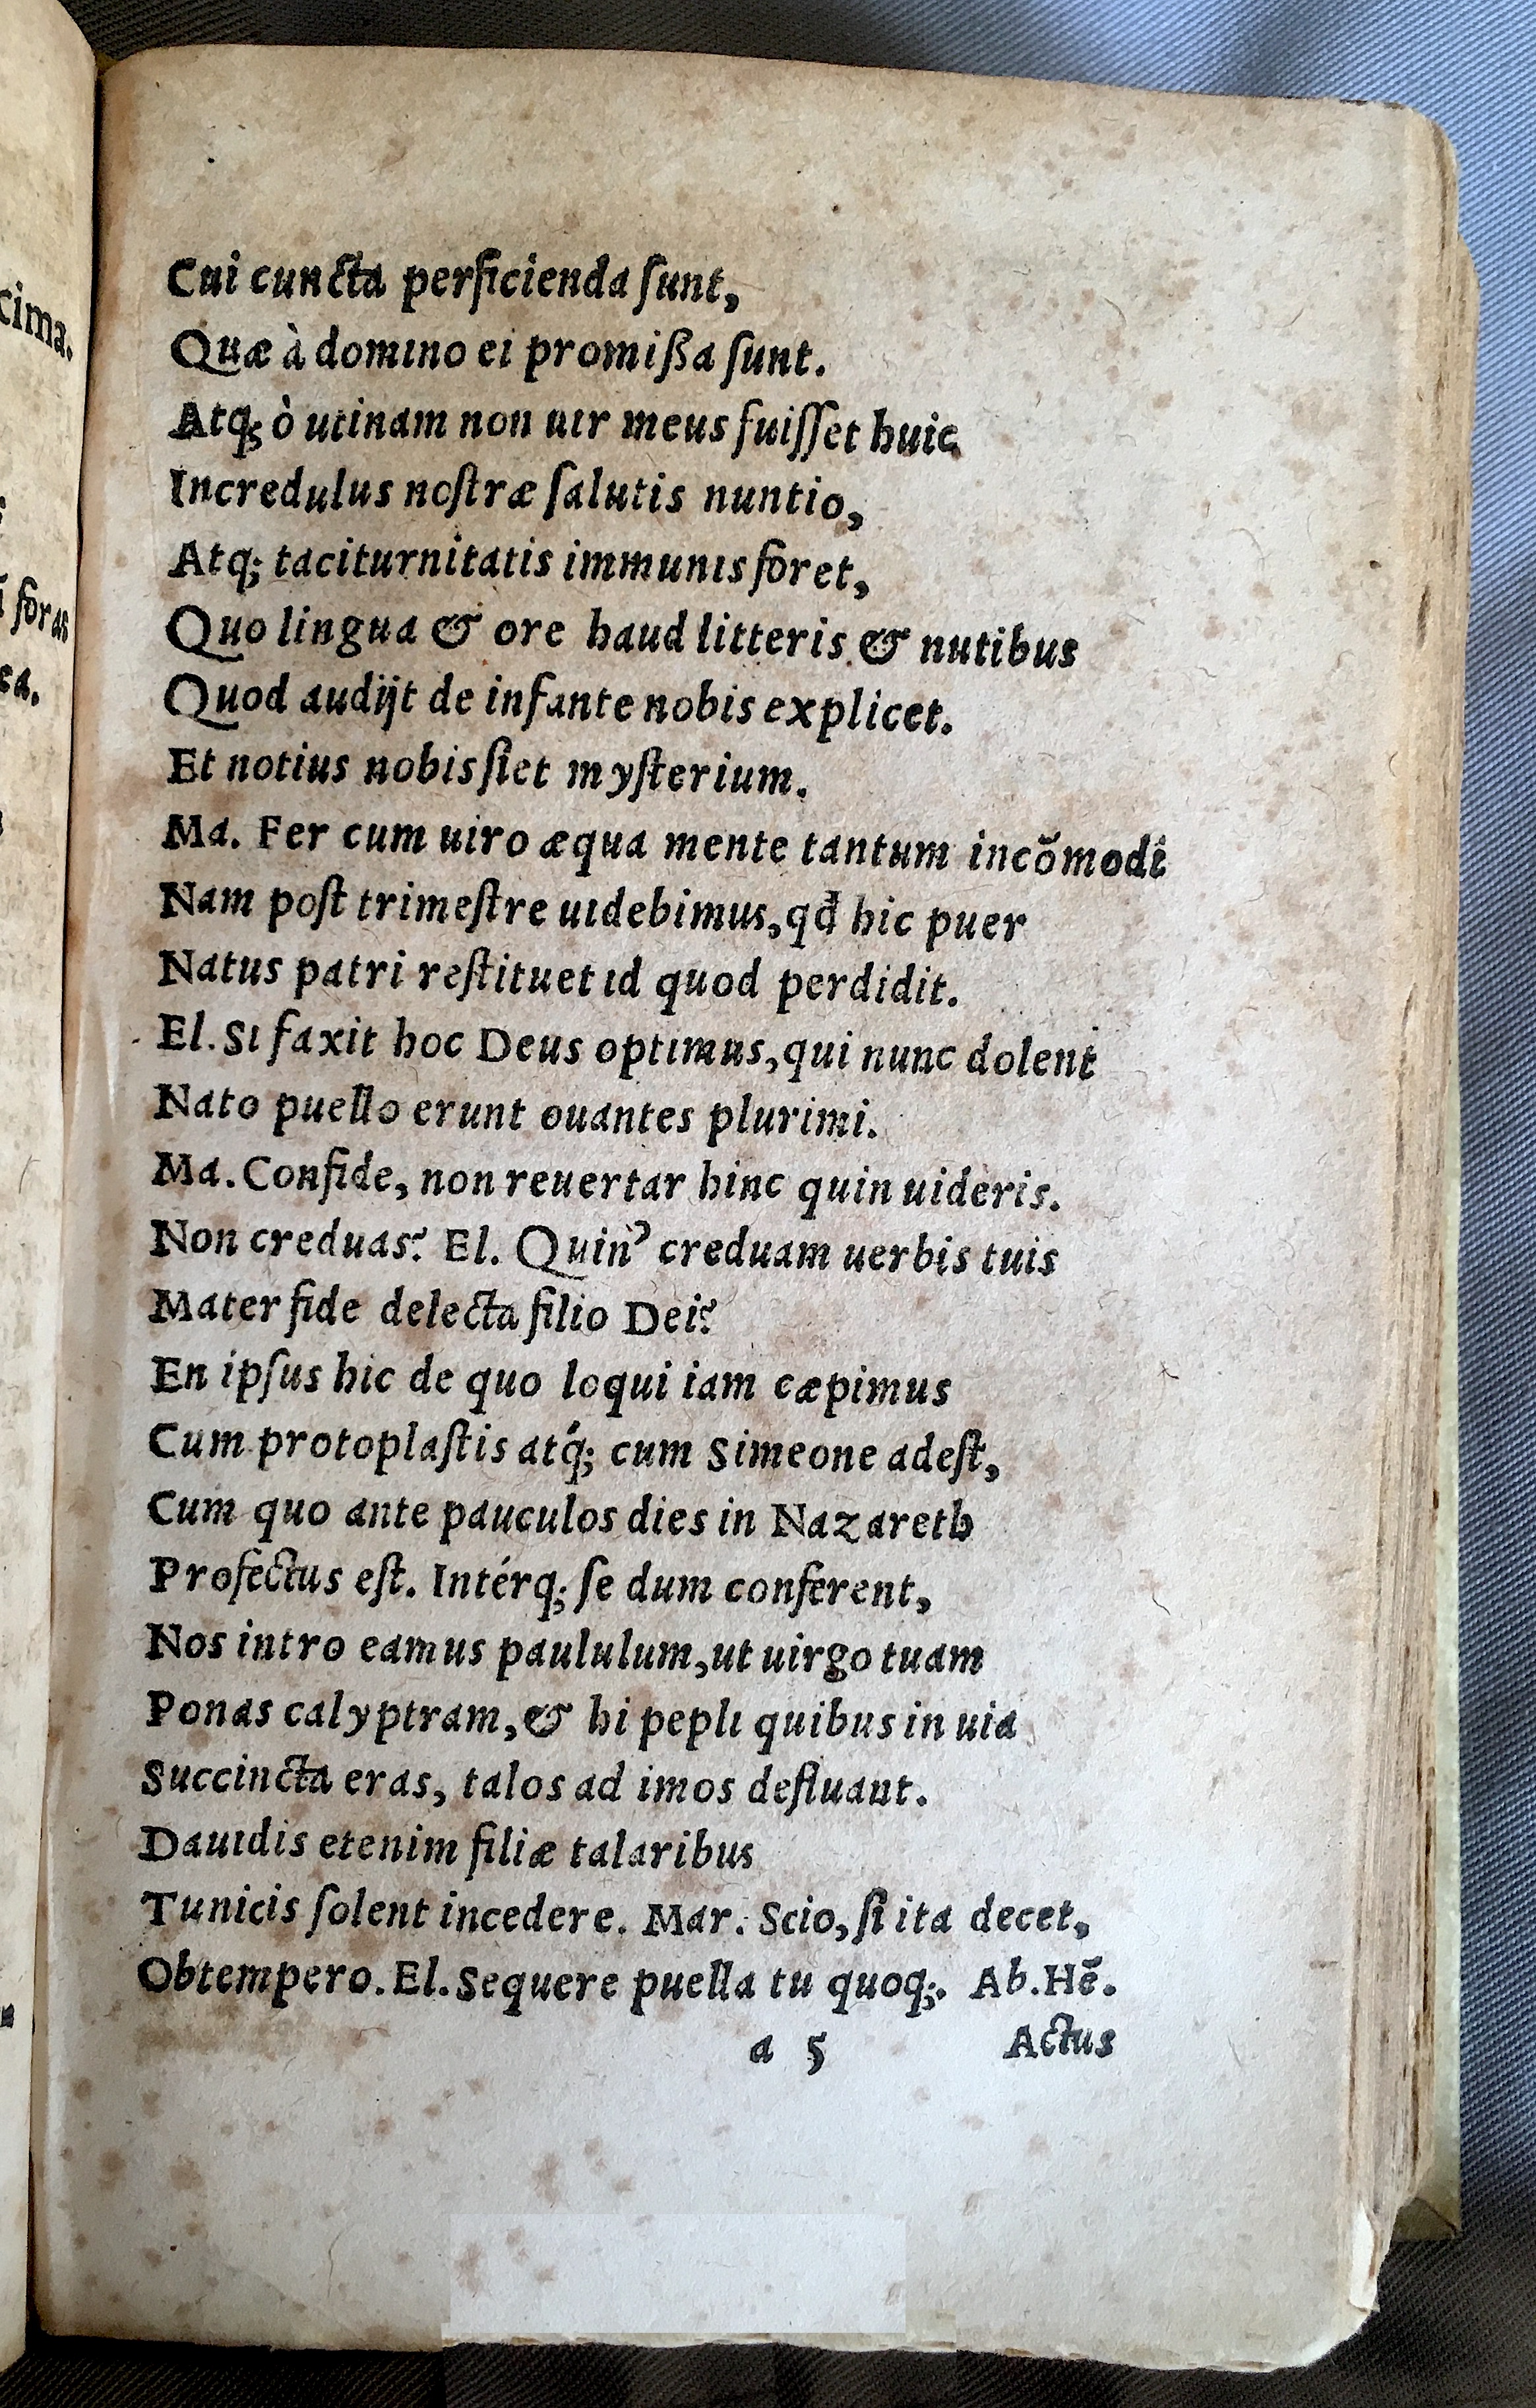 cima.
foras
ea.
Cui cuncta perficienda ſunt,
Quæ à domino ei promißa ſunt.
Atq; ò utinam non uir meus fuiſſet huic
Incredulus noſtræ ſalutis nuntio,
Atq; taciturnitatis immunis foret,
Quo lingua & ore haud litteris & nutibus
Quod audijt de infante nobis explicet.
Et notius nobis ſiet myſterium.
Ma. Fer cum uiro æqua mente tantum incõmodi
Nam poſt trimeſtre uidebimus, qđ hic puer
Natus patri reſtituet id quod perdidit.
El. Si faxit hoc Deus optimus, qui nunc dolent
Nato puello erunt ouantes plurimi.
Ma. Confide, non reuertar hinc quin uideris.
Non creduas? El. Quin' creduam uerbis tuis
Mater fide delecta filio Dei?
En ipſus hic de quo loqui iam cæpimus
Cum protoplaſtis atq́; cum Simeone adeſt,
Cum quo ante pauculos dies in Nazareth
Profectus eſt. Intérq; ſe dum conferent,
Nos intro eamus paululum, ut uirgo tuam
Ponas calyptram, & hi pepli quibus in uia
Succincta eras, talos ad imos defluant.
Dauidis etenim filiæ talaribus
Tunicis ſolent incedere. Mar. Scio, ſi ita decet,
Obtempero. El. Sequere puella tu quoq;. Ab. Hẽ.
a 5 Actus